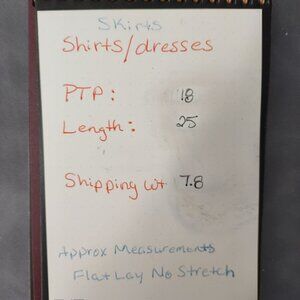 Skirts
Shirts/dresses
PTP: 18
Length: 25
Shipping wt 7.8
Approx Measurements
Flat Lay No Stretch